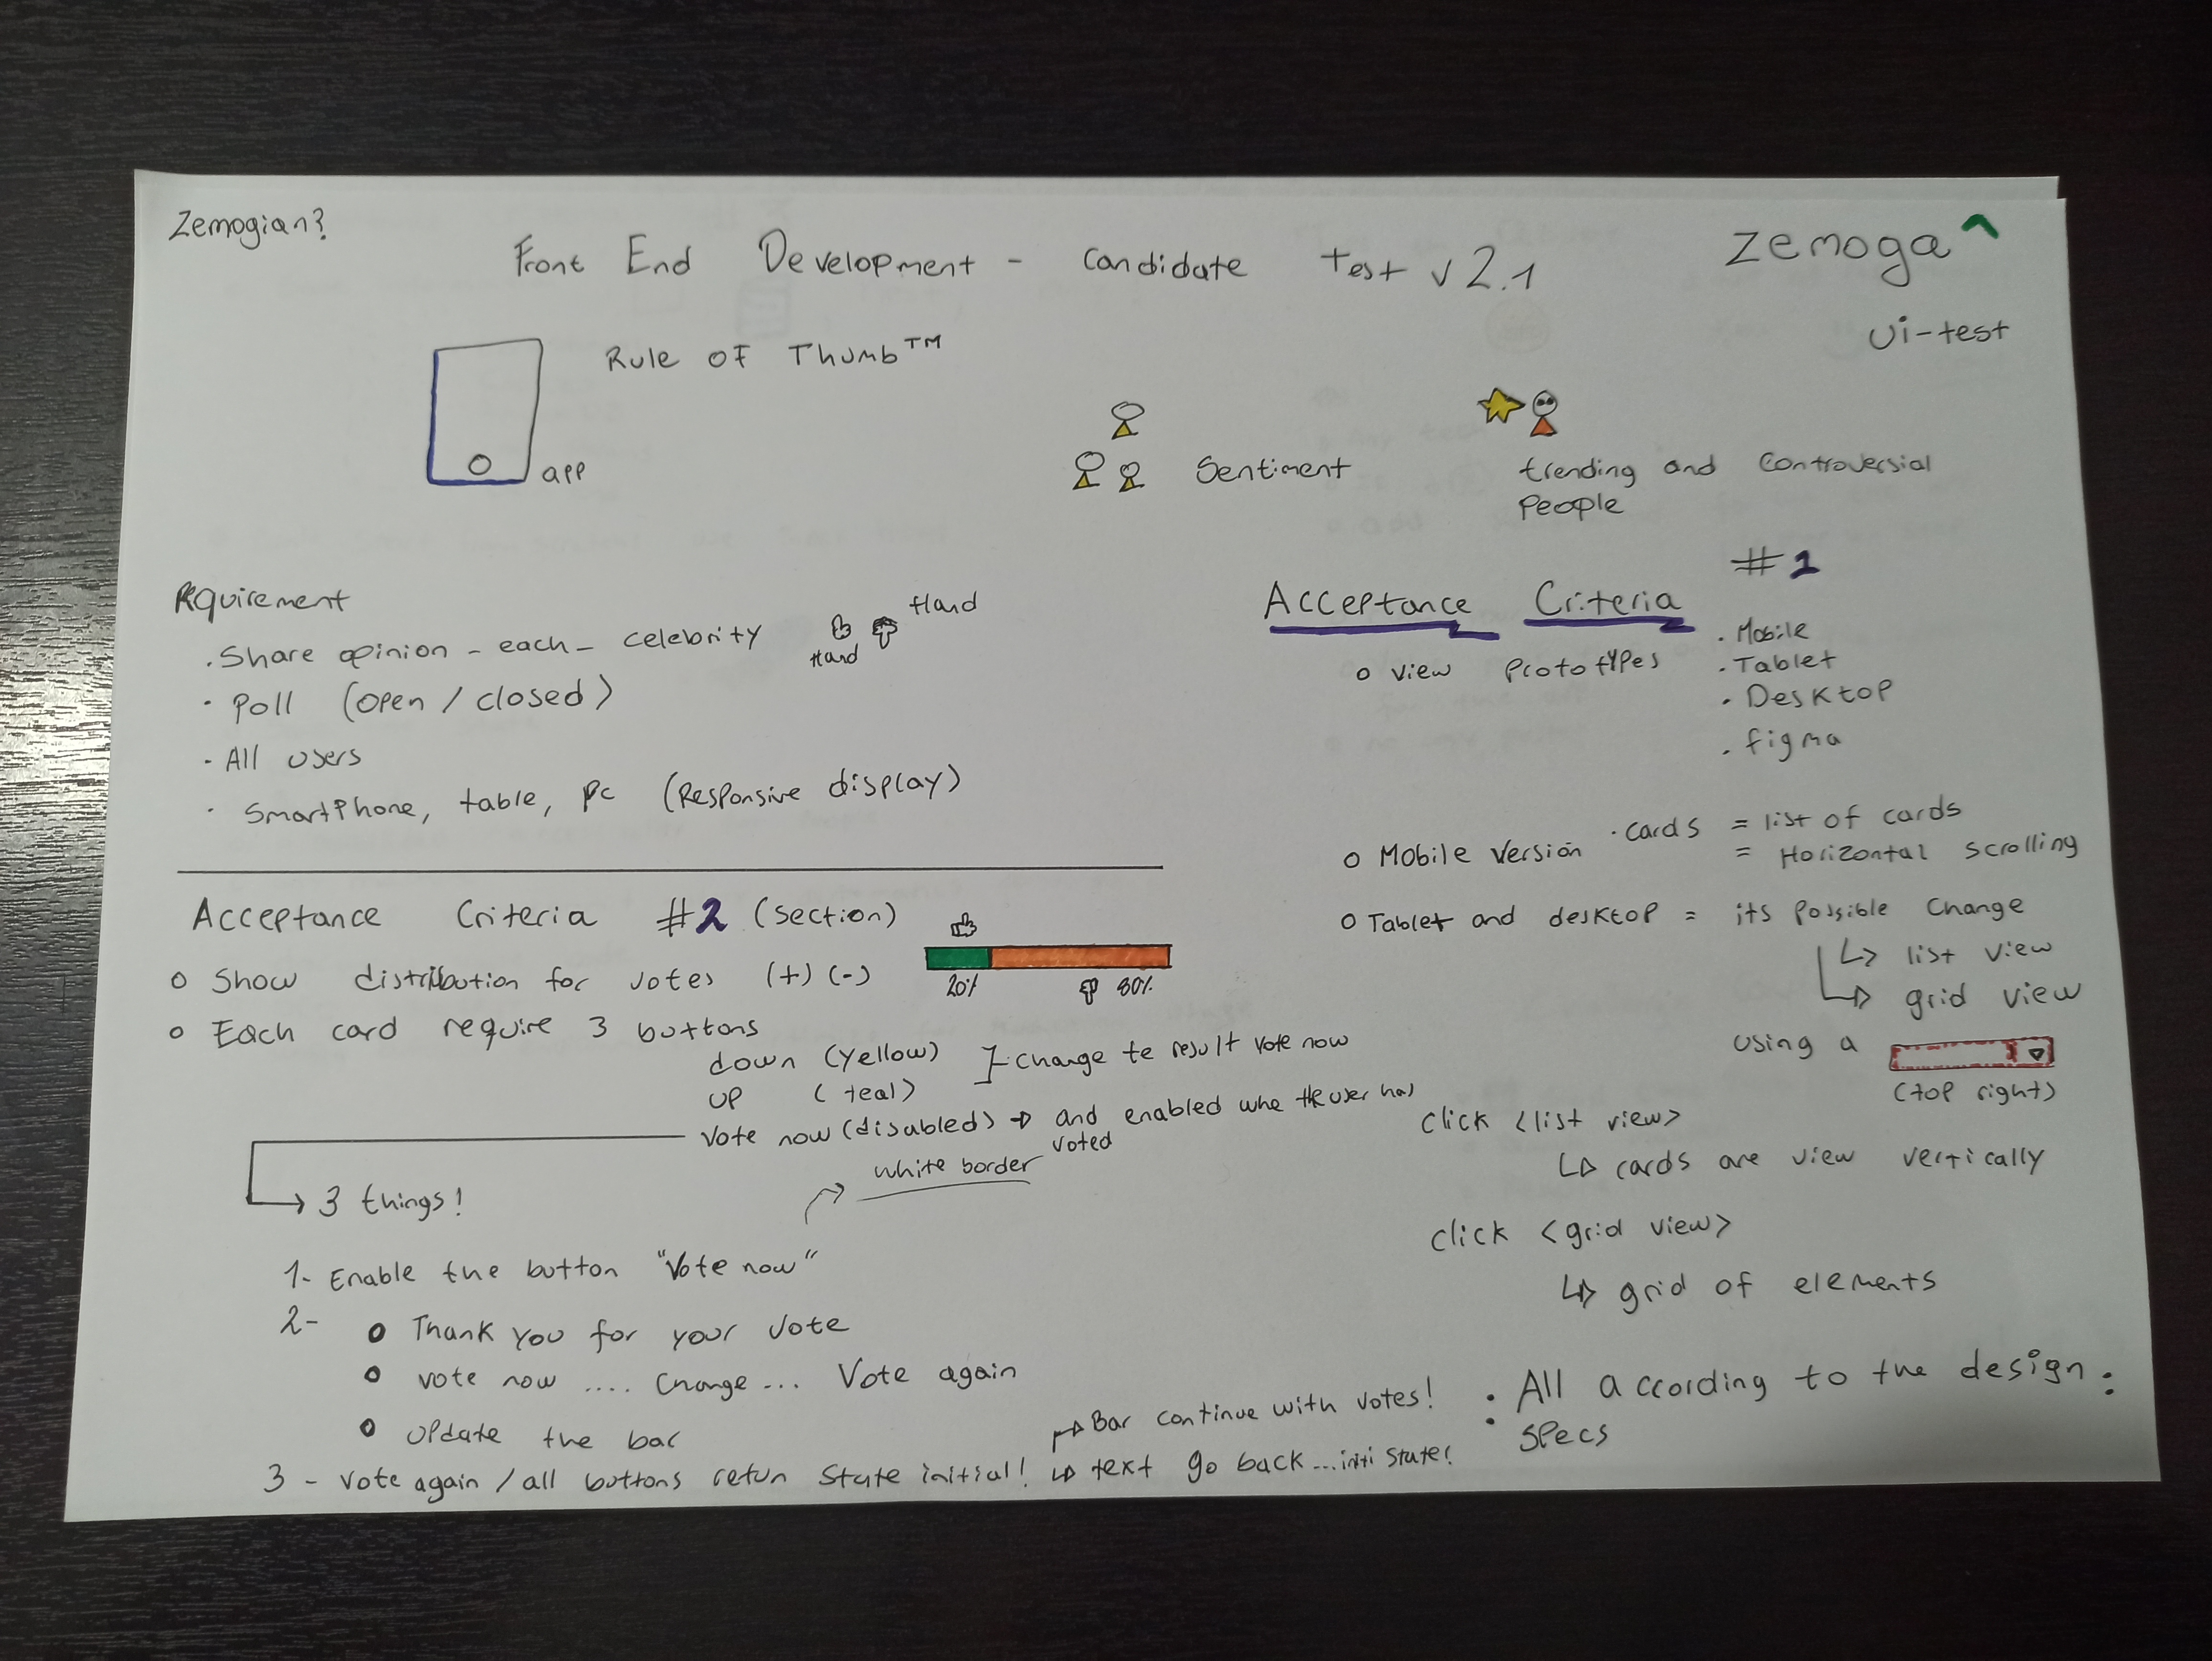 Zemogian?
Front End Development - candidate test v 2.1
zemoga
Ui-test
Rule OF Thumb™
app
Sentiment
trending and controversial
People
Rquirement
. Share opinion - each - celebrity
Hand
Hand
· Poll (open / closed)
· All users
· SmartPhone, table, pc (Responsive display)
Acceptance Criteria #1
o view Prototypes
. Mobile
. Tablet
. Desktop
. figma
o Mobile version · cards = list of cards
= Horizontal scrolling
o Tablet and desktop = its possible change
↳ list view
↳ grid view
using a
(top right)
click <list view>
↳ cards are view vertically
click <grid view>
↳ grid of elements
: All according to the design :
specs
Acceptance Criteria #2 (section)
o Show distribution for votes (+) (-)
20% 80%
o Each card require 3 buttons
down (yellow)
up (teal)
change te result vote now
vote now (disabled) → and enabled whe the user has
voted
white border
→ 3 things!
1- Enable the button "Vote now"
2- • Thank you for your vote
• vote now .... change ... Vote again
• update the bar
3 - vote again / all buttons retun state initial!
→ Bar continue with votes!
↳ text go back ... initi state!